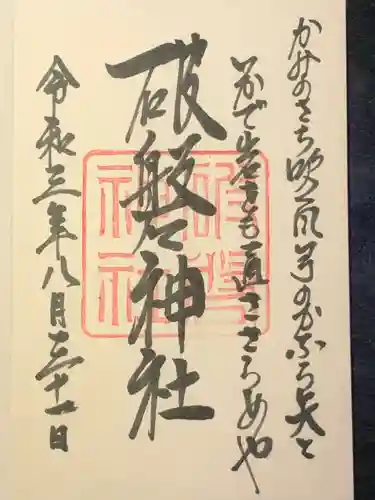 かみのさち吹風、弓のかなら矢と
いかで岩をも直ささらめや
破磐神社
破磐
神社
令和三年八月三十一日